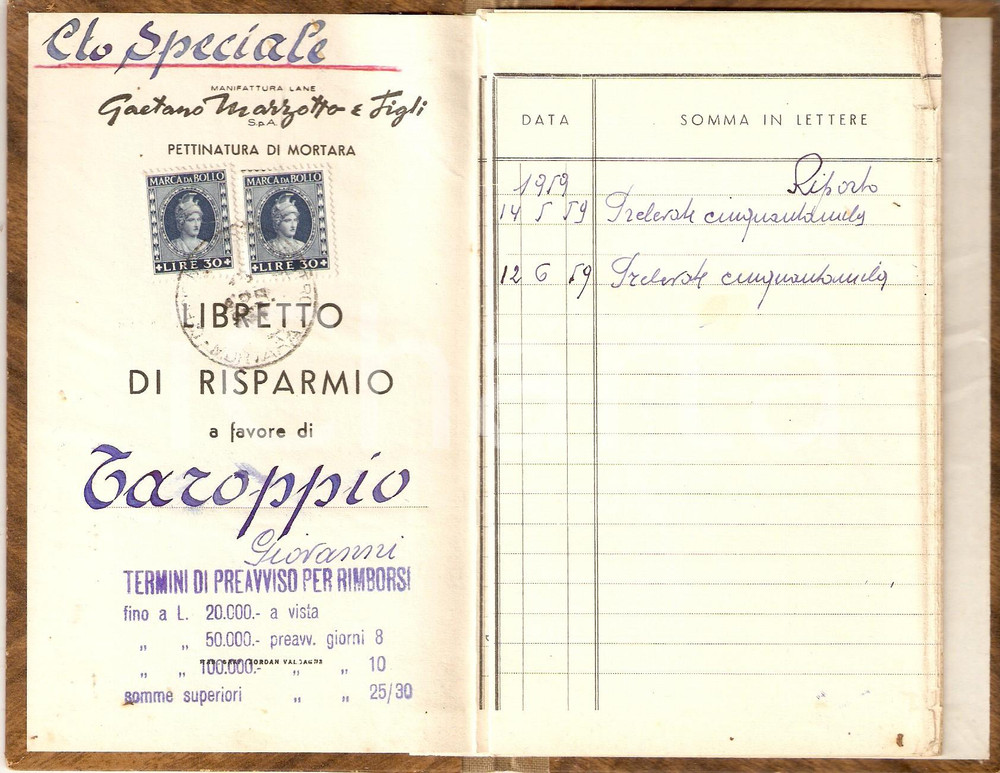 Cto Speciale
MANIFATTURA LANE
Gaetano Marzotto & Figli
S.p.A.
PETTINATURA DI MORTARA
MARCA DA BOLLO MARCA DA BOLLO
LIRE 30 LIRE 30
LIBRETTO
DI RISPARMIO
a favore di
Taroppio
Giovanni
TERMINI DI PREAVVISO PER RIMBORSI
fino a L. 20.000.- a vista
„ „ 50.000.- preavv. giorni 8
„ „ 100.000.- „ „ 10
somme superiori „ „ 25/30
DATA SOMMA IN LETTERE
1959 Riporto
14 5 59 Prelevate cinquantamila
12 6 59 Prelevate cinquantamila